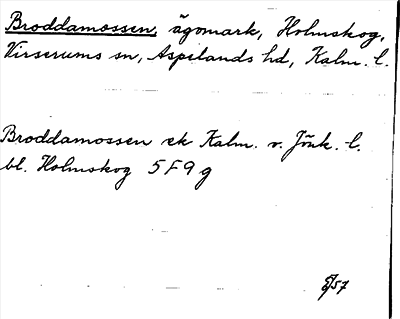 Broddamossen, ägomark, Holmskog,
Virserums sn, Aspelands hd, Kalm. l.
Broddamossen ek Kalm. v. Jönk. l.
bl. Holmskog 5F9g
57